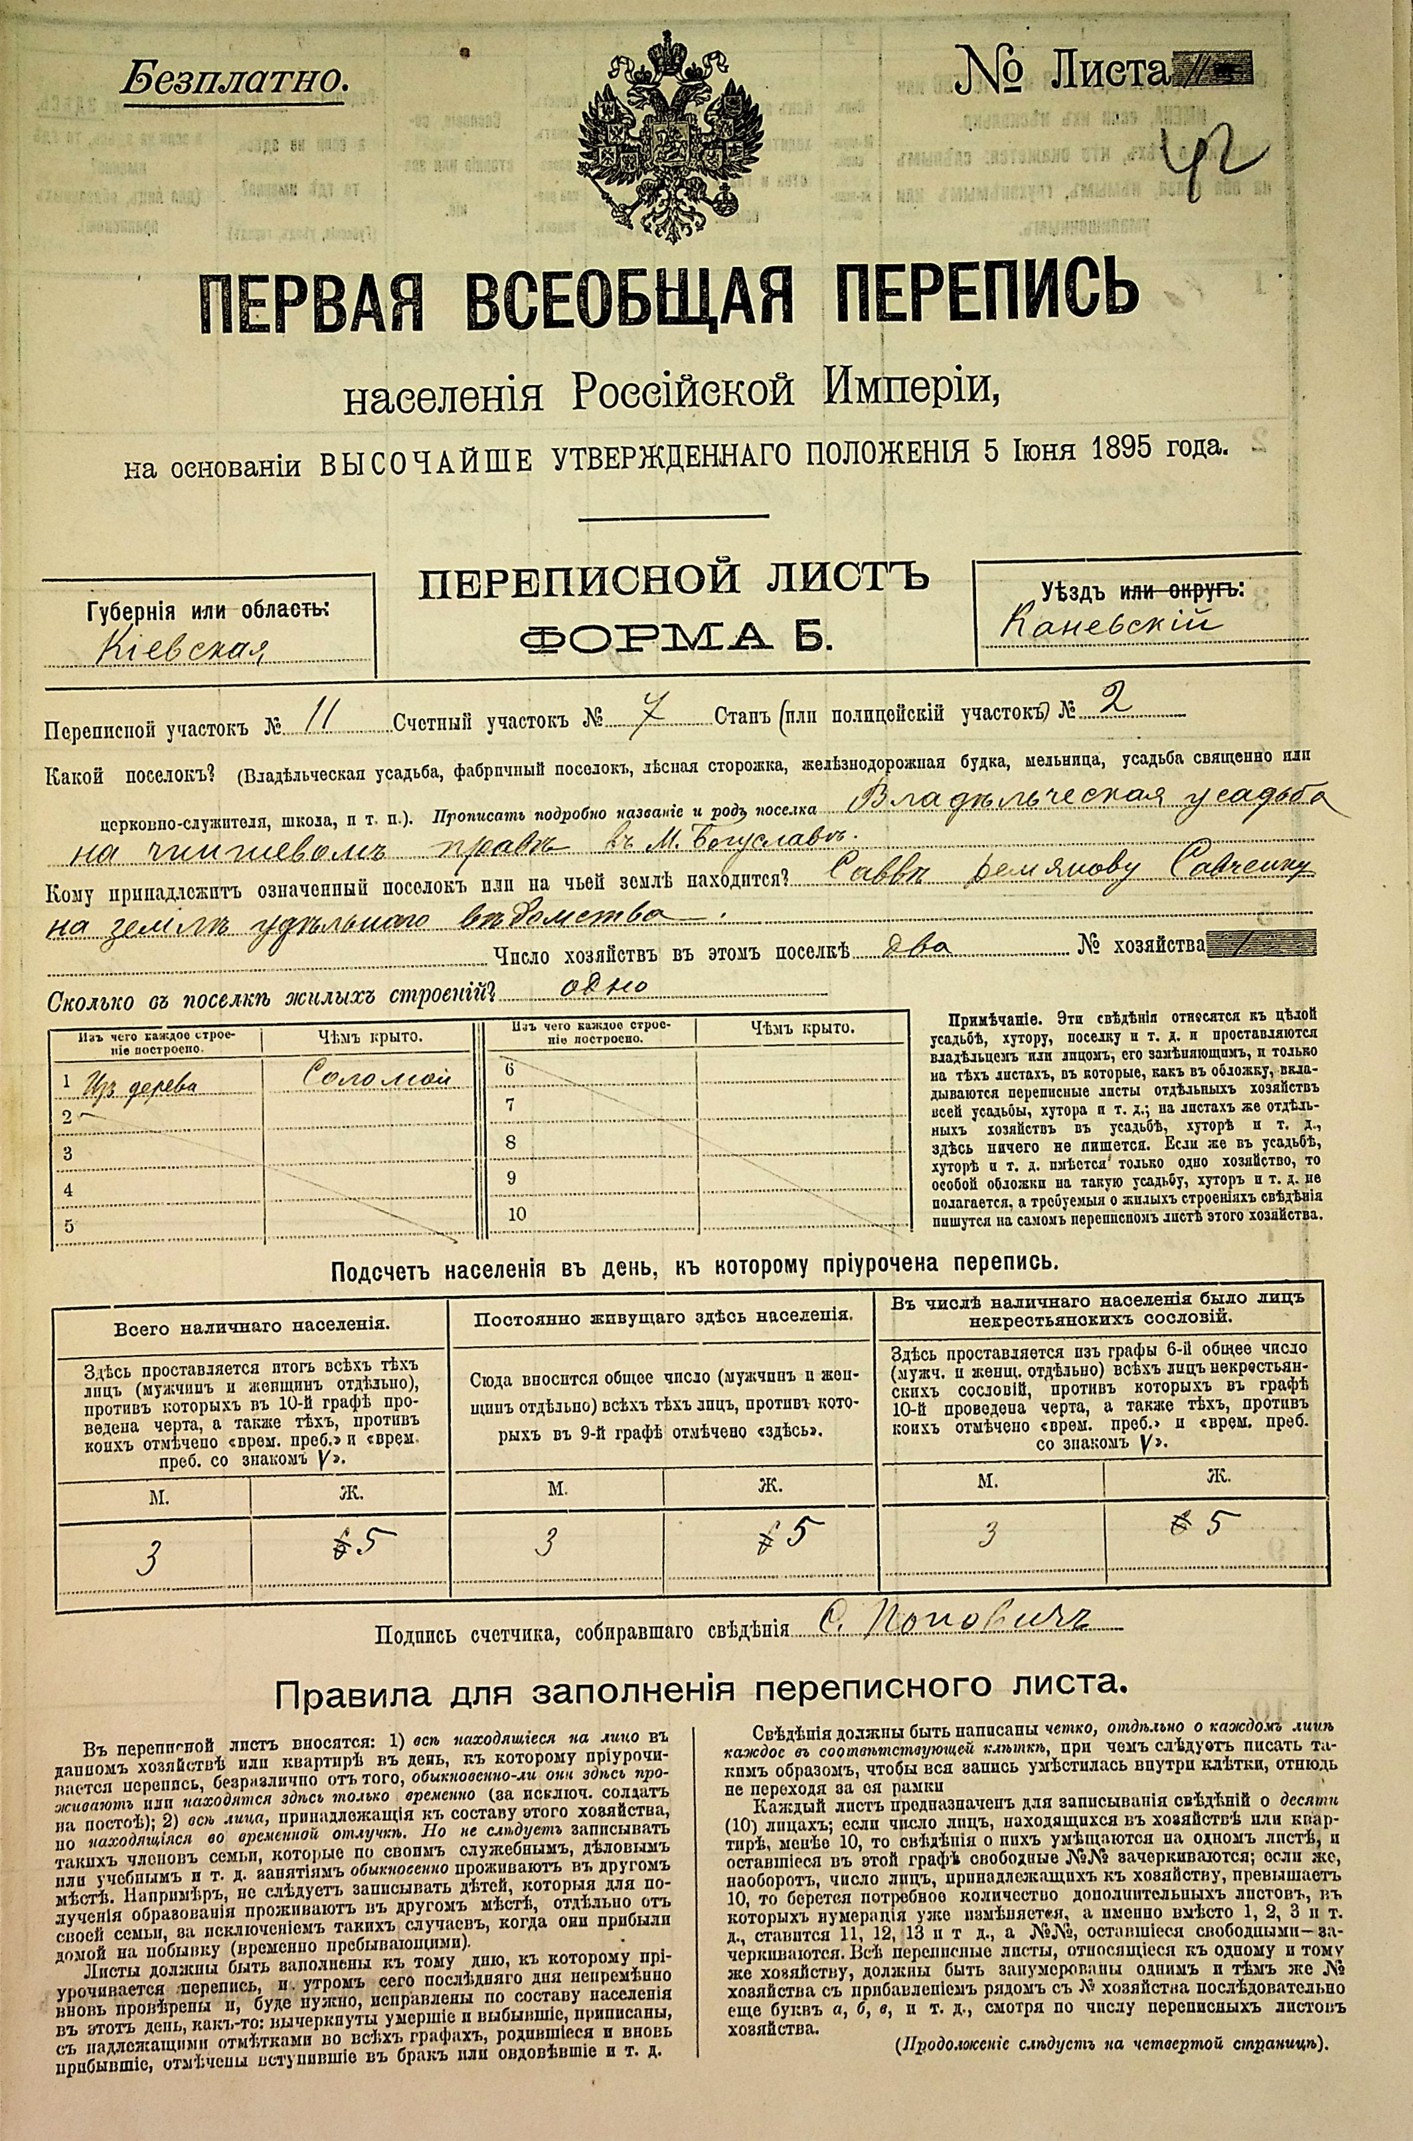 Безплатно.
№ Листа
42
ПЕРВАЯ ВСЕОБЩАЯ ПЕРЕПИСЬ
населенія Россійской Имперіи,
на основаніи ВЫСОЧАЙШЕ УТВЕРЖДЕННАГО ПОЛОЖЕНІЯ 5 Іюня 1895 года.
ПЕРЕПИСНОЙ ЛИСТЪ
ФОРМА Б.
Губернія или область:
Кіевская
Уѣздъ или округъ:
Каневскій
Переписной участокъ № 11 Счетный участокъ № 7 Станъ (или полицейскій участокъ) № 2
Какой поселокъ? (Владѣльческая усадьба, фабричный поселокъ, лѣсная сторожка, желѣзнодорожная будка, мельница, усадьба священно или
церковно-служителя, школа, и т. п.). Прописать подробно названіе и родъ поселка Владѣльческая усадьба
на чиншевомъ правѣ въ М. Богуславѣ.
Кому принадлежитъ означенный поселокъ или на чьей землѣ находится? Саввѣ Савченку
на землѣ удѣльнаго вѣдомства.
Число хозяйствъ въ этомъ поселкѣ два № хозяйства 1
Сколько въ поселкѣ жилыхъ строеній? одно
Изъ чего каждое строеніе построено. Чѣмъ крыто. Изъ чего каждое строеніе построено. Чѣмъ крыто.
1 Изъ дерева Соломой 6
2 7
3 8
4 9
5 10
Примѣчаніе. Эти свѣдѣнія относятся къ цѣлой
усадьбѣ, хутору, поселку и т. д. и проставляются
владѣльцемъ или лицомъ, его замѣняющимъ, и только
на тѣхъ листахъ, въ которые, какъ въ обложку, вкла-
дываются переписные листы отдѣльныхъ хозяйствъ
всей усадьбы, хутора и т. д.; на листахъ же отдѣль-
ныхъ хозяйствъ въ усадьбѣ, хуторѣ и т. д.,
здѣсь ничего не пишется. Если же въ усадьбѣ,
хуторѣ и т. д. имѣется только одно хозяйство, то
особой обложки на такую усадьбу, хуторъ и т. д. не
полагается, а требуемыя о жилыхъ строеніяхъ свѣдѣнія
пишутся на самомъ переписномъ листѣ этого хозяйства.
Подсчетъ населенія въ день, къ которому пріурочена перепись.
Всего наличнаго населенія.
Здѣсь проставляется итогъ всѣхъ тѣхъ
лицъ (мужчинъ и женщинъ отдѣльно),
противъ которыхъ въ 10-й графѣ про-
ведена черта, а также тѣхъ, противъ
коихъ отмѣчено «врем. преб.» и «врем.
преб. со знакомъ V».
М. Ж.
3 6 5
Постоянно живущаго здѣсь населенія.
Сюда вносится общее число (мужчинъ и жен-
щинъ отдѣльно) всѣхъ тѣхъ лицъ, противъ кото-
рыхъ въ 9-й графѣ отмѣчено «здѣсь».
М. Ж.
3 6 5
Въ числѣ наличнаго населенія было лицъ
некрестьянскихъ сословій.
Здѣсь проставляется изъ графы 6-й общее число
(мужч. и женщ. отдѣльно) всѣхъ лицъ некрестьян-
скихъ сословій, противъ которыхъ въ графѣ
10-й проведена черта, а также тѣхъ, противъ
коихъ отмѣчено «врем. преб.» и «врем. преб.
со знакомъ V».
М. Ж.
3 6 5
Подпись счетчика, собиравшаго свѣдѣнія С. Поповичъ
Правила для заполненія переписного листа.
Въ переписной листъ вносятся: 1) всѣ находящіеся на лицо въ
данномъ хозяйствѣ или квартирѣ въ день, къ которому пріурочи-
вается перепись, безразлично отъ того, обыкновенно-ли они здѣсь про-
живаютъ или находятся здѣсь только временно (за исключ. солдатъ
на постоѣ); 2) всѣ лица, принадлежащія къ составу этого хозяйства,
но находящіяся во временной отлучкѣ. Но не слѣдуетъ записывать
такихъ членовъ семьи, которые по своимъ служебнымъ, дѣловымъ
или учебнымъ и т. д. занятіямъ обыкновенно проживаютъ въ другомъ
мѣстѣ. Напримѣръ, не слѣдуетъ записывать дѣтей, которыя для по-
лученія образованія проживаютъ въ другомъ мѣстѣ, отдѣльно отъ
своей семьи, за исключеніемъ такихъ случаевъ, когда они прибыли
домой на побывку (временно пребывающими).
Листы должны быть заполнены къ тому дню, къ которому прі-
урочивается перепись, и утромъ сего послѣдняго дня непремѣнно
вновь провѣрены и, буде нужно, исправлены по составу населенія
въ этотъ день, какъ-то: вычеркнуты умершіе и выбывшіе, приписаны,
съ надлежащими отмѣтками во всѣхъ графахъ, родившіеся и вновь
прибывшіе, отмѣчены вступившіе въ бракъ или овдовѣвшіе и т. д.
Свѣдѣнія должны быть написаны четко, отдѣльно о каждомъ лицѣ
каждое въ соотвѣтствующей клѣткѣ, при чемъ слѣдуетъ писать та-
кимъ образомъ, чтобы вся запись умѣстилась внутри клѣтки, отнюдь
не переходя за ея рамки
Каждый листъ предназначенъ для записыванія свѣдѣній о десяти
(10) лицахъ; если число лицъ, находящихся въ хозяйствѣ или квар-
тирѣ, менѣе 10, то свѣдѣнія о нихъ умѣщаются на одномъ листѣ, и
оставшіеся въ этой графѣ свободные №№ зачеркиваются; если же,
наоборотъ, число лицъ, принадлежащихъ къ хозяйству, превышаетъ
10, то берется потребное количество дополнительныхъ листовъ, въ
которыхъ нумерація уже измѣняется, а именно вмѣсто 1, 2, 3 и т.
д., ставится 11, 12, 13 и т д., а №№, оставшіеся свободными—за-
черкиваются. Всѣ переписные листы, относящіеся къ одному и тому
же хозяйству, должны быть занумерованы однимъ и тѣмъ же №
хозяйства съ прибавленіемъ рядомъ съ № хозяйства послѣдовательно
еще буквъ а, б, в, и т. д., смотря по числу переписныхъ листовъ
хозяйства.
(Продолженіе слѣдуетъ на четвертой страницѣ).